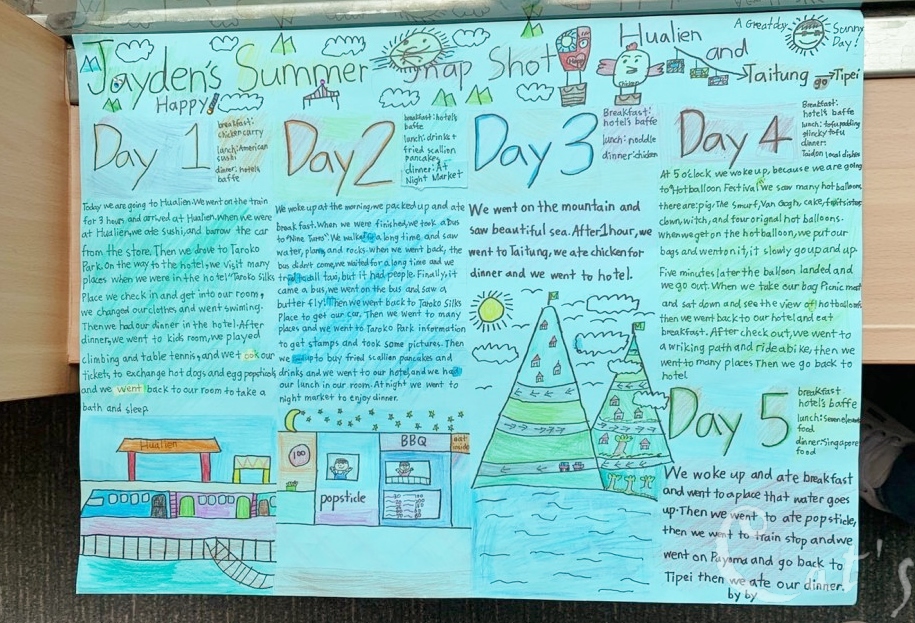 Jayden's Summer Snap Shot
Hualien
and
Taitung go Tipei
A Great day
Sunny
Day!
Happy!
Happy
Day 1
breakfast:
chicken curry
lunch: American
sushi
dinner: hotel's
baffe
Today we are going to Hualien. We went on the train
for 3 hours, and arrived at Hualien, when we were
at Hualien, we ate sushi, and barrow the car
from the store. Then we drove to Taroko
Park. On the way to the hotel, we visit many
places when we were in the hotel "Taroko Silks
Place we check in and get into our room,
we changed our clothes and went swiming.
Then we had our dinner in the hotel. After
dinner, we went to kids room, we played
climbing and table tennis, and we took our
tickets, to exchange hot dogs and egg popsticks
and we went back to our room to take a
bath and sleep.
Hualien
Day 2
breakfast: hotel's
baffe
lunch: drinks +
fried scallion
pancakes
dinner: At
Night Market
We woke up at the morning, we packed up and ate
breakfast. When we were finished, we took a bus
to "Nine Turns". We walked for a long time and saw
water, plans, and rocks. when we went back, the
bus didn't come, we waited for a long time and we
call taxi, but it had people. Finally, it
came a bus, we went on the bus and saw a
butterfly! Then we went back to Taroko Silks
Place to get our car. Then we went to many
places and we went to Taroko Park information
to get stamps and took some pictures. Then
we to buy fried scallion pancakes and
drinks and we went to our hotel, and we had
our lunch in our room. At night we went to
night market to enjoy dinner.
100
popsticle
BBQ
eat
inside
Day 3
Breakfast:
hotel's baffe
lunch: noddle
dinner: chicken
We went on the mountain and
saw beautiful sea. After 1 hour, we
went to Taitung, we ate chicken for
dinner and we went to hotel.
Day 4
Breakfast:
hotel's baffe
lunch: tofu pudding
glincky tofu
dinner:
Taidon local dishes
At 5 o'clock we woke up, because we are going
to "Hot balloon Festival" we saw many hot balloons,
there are: pig, The Smurf, Van Gogh, cake,
clown, witch, and four orignal hot balloons.
When we get on the hot balloon, we put our
bags and went on it, it slowly go up and up.
Five minutes later the balloon landed and
we go out. When we take our bag Picnic mest
and sat down and see the view of hot balloons
then we went back to our hotel and eat
breakfast. After check out, we went to
a wriking path and ride a bike, then we
went to many places Then we go back to
hotel.
Day 5
breakfast
hotel's baffe
lunch:
food
dinner: Singapore
food
We woke up and ate breakfast
and went to a place that water goes
up. Then we went to ate popsticle,
then we went to train stop and we
went on Puyoma and go back to
Tipei then we ate our dinner.
by by
Cat's